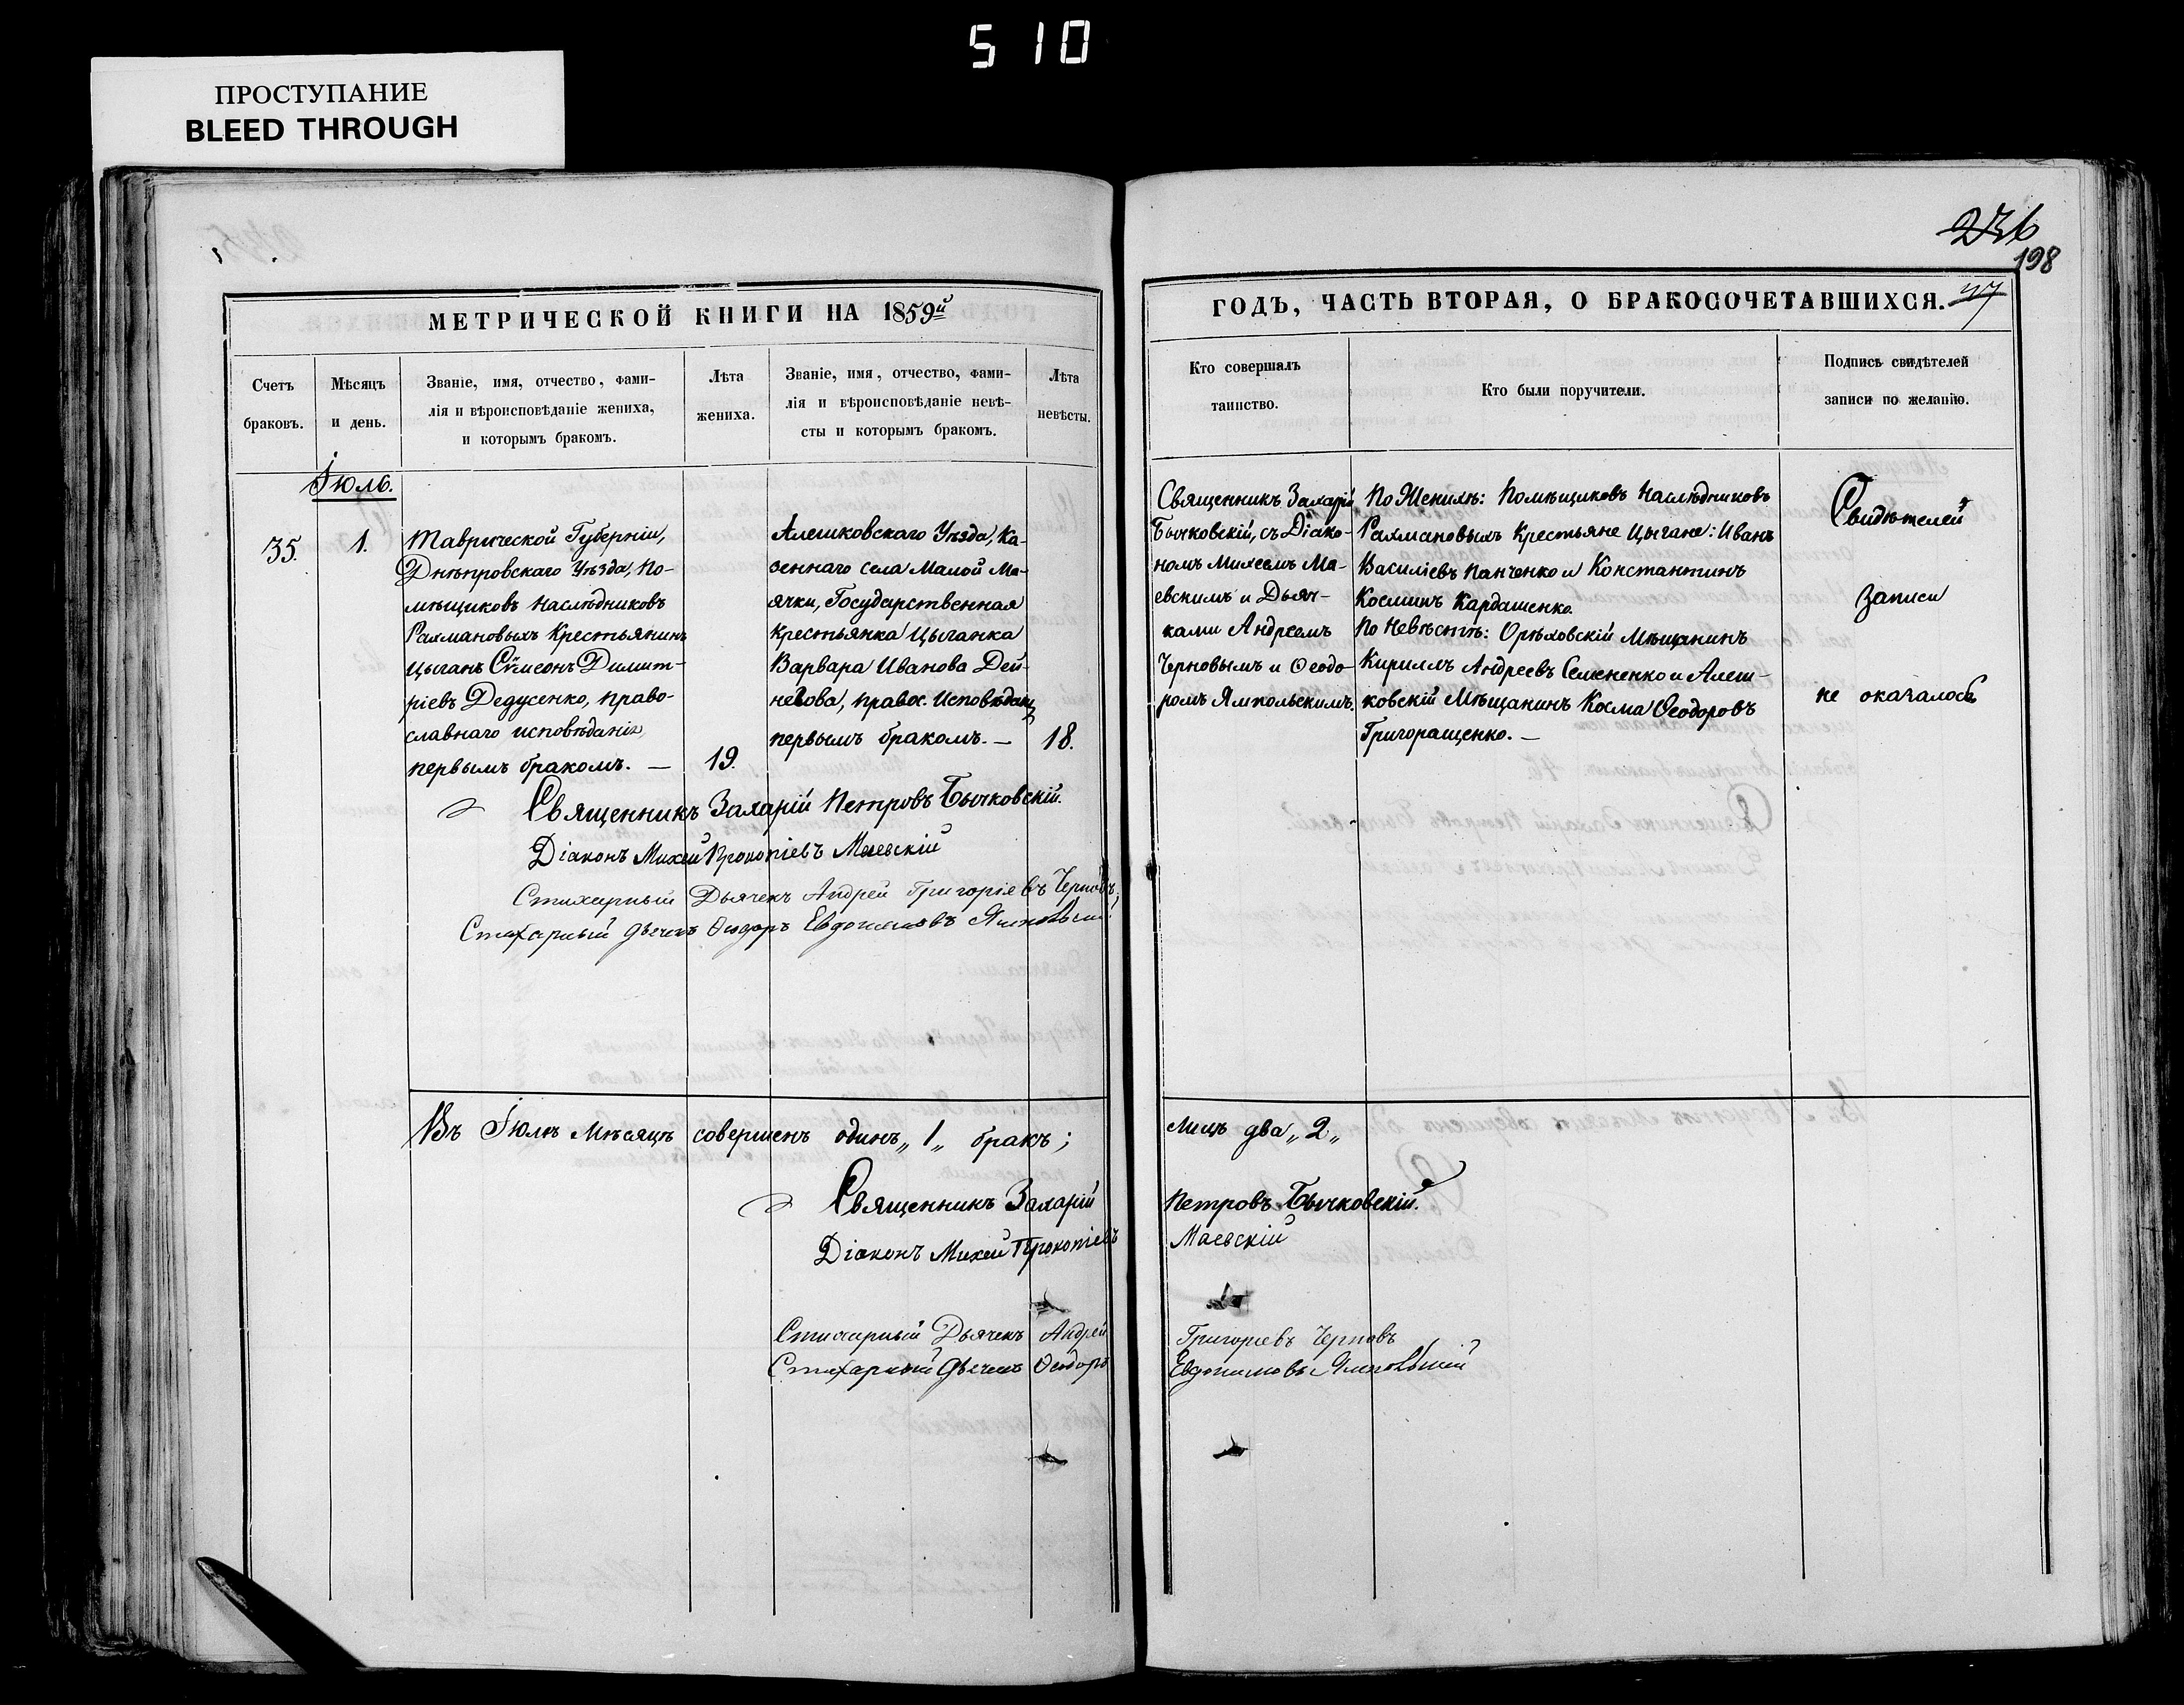 510
ПРОСТУПАНИЕ
BLEED THROUGH
236
198
МЕТРИЧЕСКОЙ КНИГИ НА 1859й
ГОДЪ, ЧАСТЬ ВТОРАЯ, О БРАКОСОЧЕТАВШИХСЯ.
Счетъ
браковъ.
Мѣсяцъ
и день.
Званіе, имя, отчество, фами-
лія и вѣроисповѣданіе жениха,
и которымъ бракомъ.
Лѣта
жениха.
Званіе, имя, отчество, фами-
лія и вѣроисповѣданіе невѣ-
сты и которымъ бракомъ.
Лѣта
невѣсты.
Кто совершалъ
таинство.
Кто были поручители.
Подпись свидѣтелей
записи по желанію.
Іюль.
35.
1.
Таврической Губерніи,
Днѣпровскаго Уѣзда, По-
мѣщиковъ Наслѣдниковъ
Рахмановыхъ Крестьянинъ
Цыганъ Сѵмеонъ Димит-
ріевъ Дедусенко, право-
славнаго исповѣданія,
первымъ бракомъ. —
19.
Алешковскаго Уѣзда, Ка-
зеннаго села Малой Ма-
ячки, Государственная
крестьянка Цыганка
Варвара Иванова Дей-
некова, правос. Исповѣдан,
первымъ бракомъ. —
18.
Священникъ Захарій
Бычковскій, съ Діако-
номъ Михеемъ Ма-
евскимъ и Дьяч-
ками Андреемъ
Черновымъ и Ѳеодо-
ромъ Ямпольскимъ.
По Женихѣ: Помѣщиковъ Наслѣдниковъ
Рахмановыхъ Крестьяне Цыгане: Иванъ
Василіевъ Панченко и Константинъ
Косминъ Кардашенко.
По Невѣстѣ: Орѣховскій Мѣщанинъ
Кириллъ Андреевъ Семененко и Алеш-
ковскій Мѣщанинъ Косма Ѳеодоровъ
Григоращенко. —
Свидѣтелей
записи
не оказалось
Священникъ Захарій Петровъ Бычковскій.
Діаконъ Михей Прокопіевъ Маевскій
Стихарный Дьячекъ Андрей Григоріевъ Черновъ
Стихарный Дьячекъ Ѳеодоръ Евдокимовъ Ямпольскій
Въ Іюлѣ Мѣсяцѣ совершенъ одинъ „1„ бракъ;
лицъ два „2„
Священникъ Захарій Петровъ Бычковскій.
Діаконъ Михей Прокопіевъ Маевскій
Стихарный Дьячекъ Андрей Григоріевъ Черновъ
Стихарный Дьячекъ Ѳеодоръ Евдокимовъ Ямпольскій